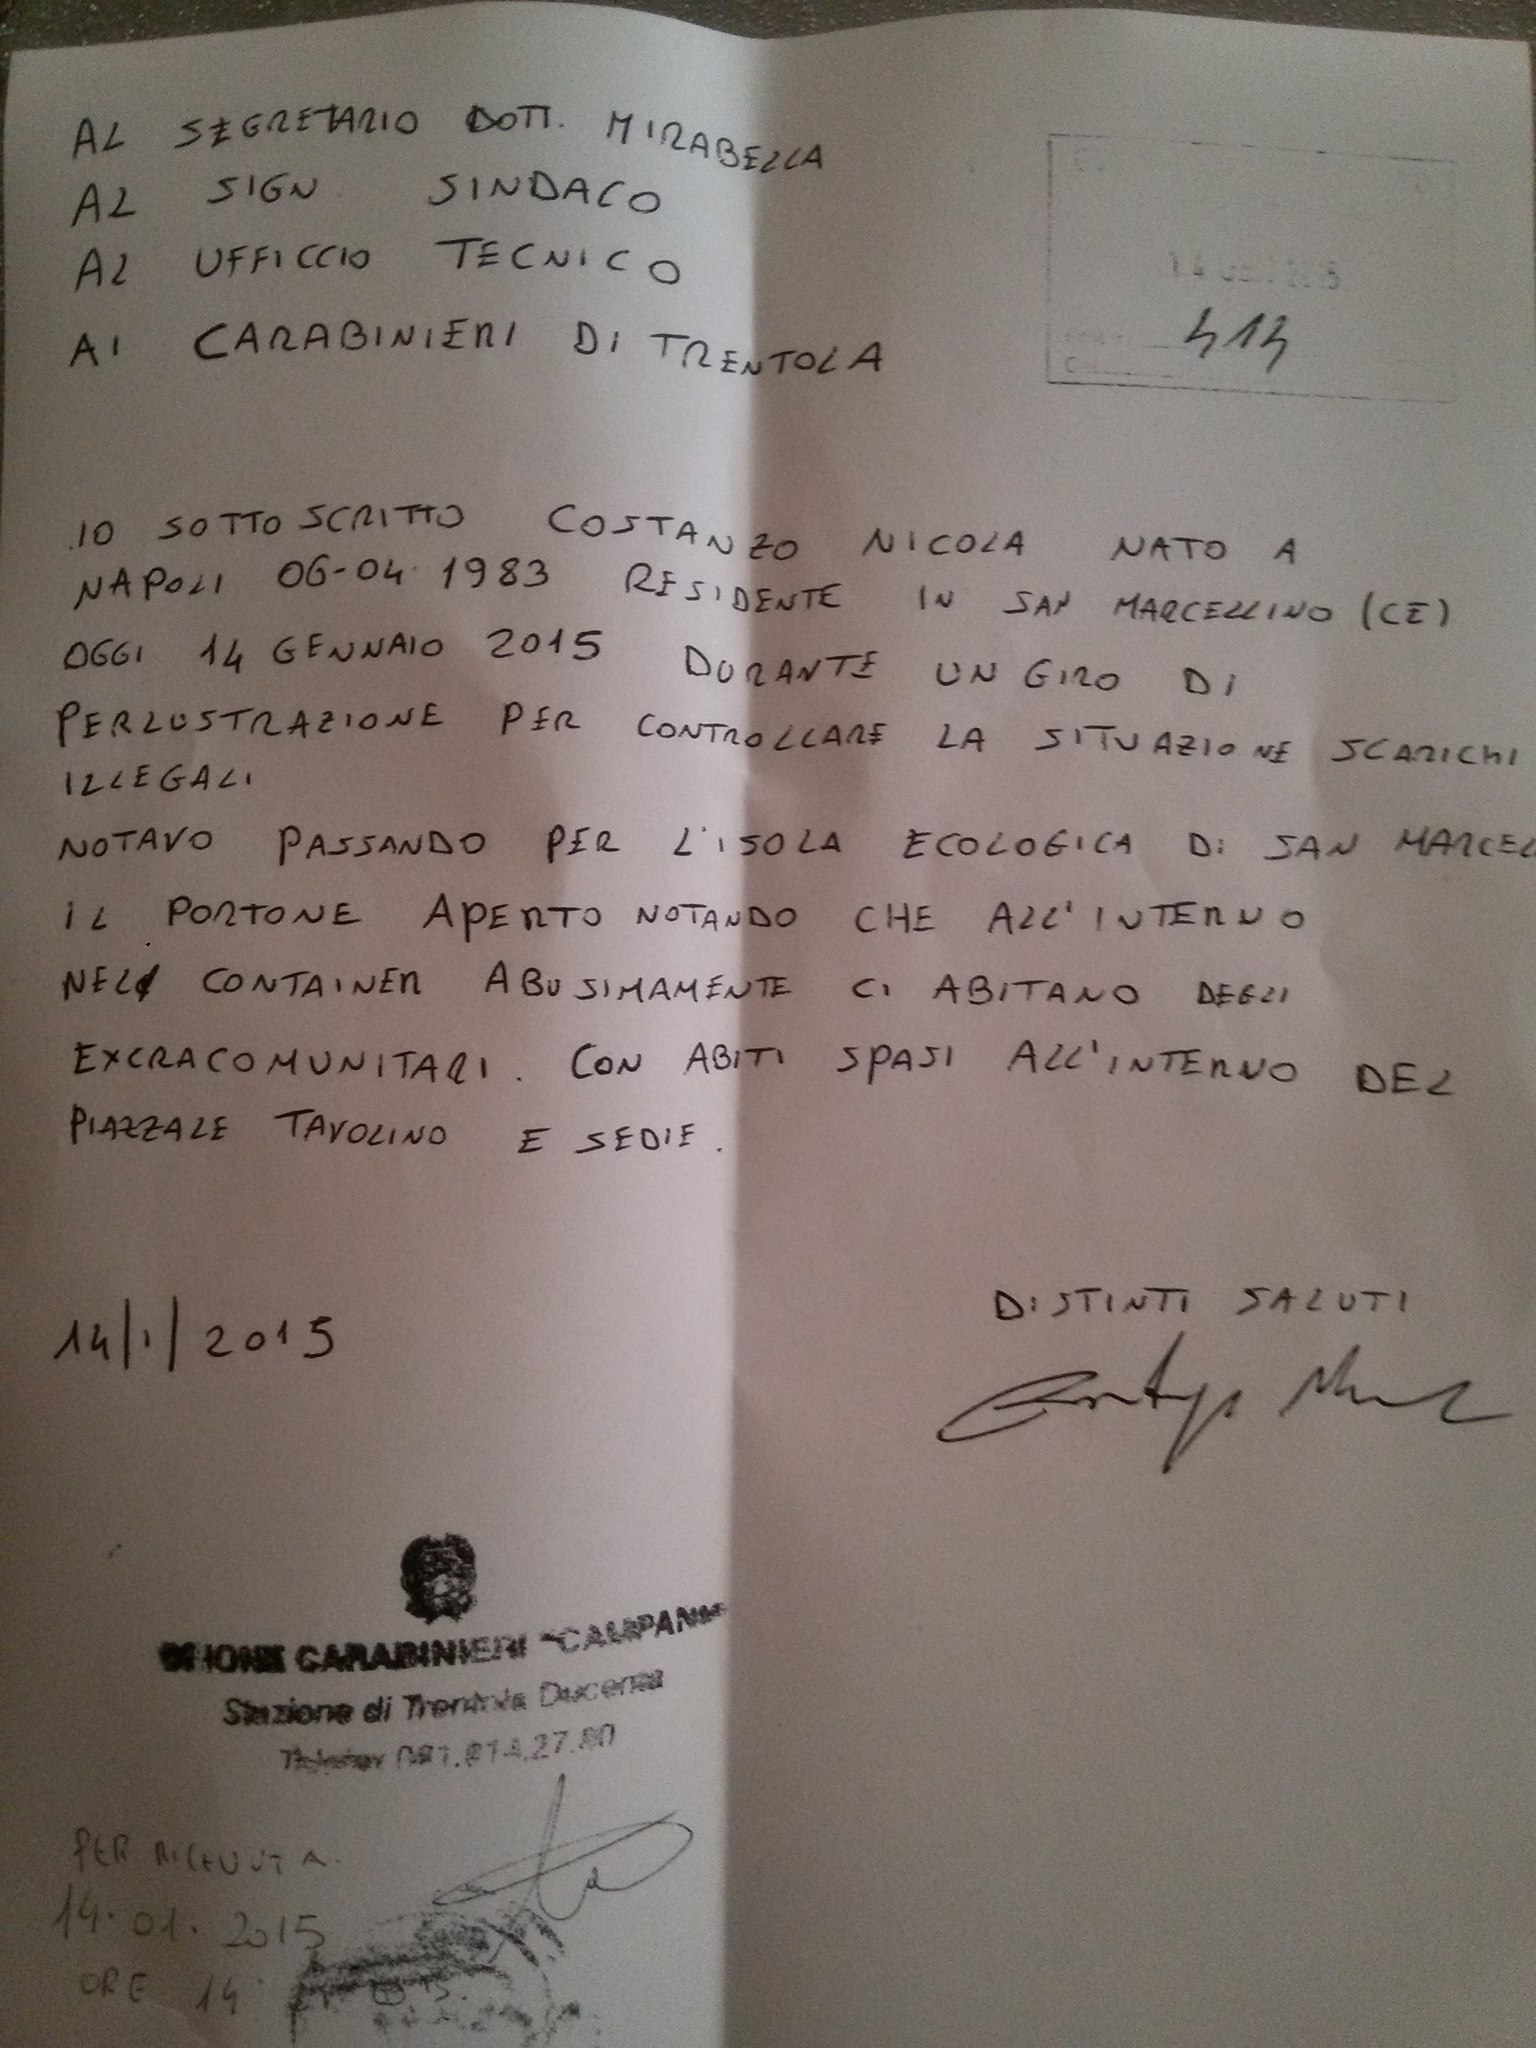 AL SEGRETARIO DOTT. MIRABELLA
AL SIGN SINDACO
AL UFFICCIO TECNICO
AI CARABINIERI DI TRENTOLA
14 GEN. 2015
414
IO SOTTOSCRITTO COSTANZO NICOLA NATO A
NAPOLI 06-04-1983 RESIDENTE IN SAN MARCELLINO (CE)
OGGI 14 GENNAIO 2015 DURANTE UN GIRO DI
PERLUSTRAZIONE PER CONTROLLARE LA SITUAZIONE SCARICHI
ILLEGALI
NOTAVO PASSANDO PER L'ISOLA ECOLOGICA DI SAN MARCEL
IL PORTONE APERTO NOTANDO CHE ALL'INTERNO
NEL CONTAINER ABUSIMAMENTE CI ABITANO DEGLI
EXCRACOMUNITARI. CON ABITI SPASI ALL'INTERNO DEL
PIAZZALE TAVOLINO E SEDIE.
DISTINTI SALUTI
14/1/2015
CARABINIERI "CAMPANIA"
Stazione di Trentola Ducenta
PER RICEVUTA
14.01.2015
ORE 14